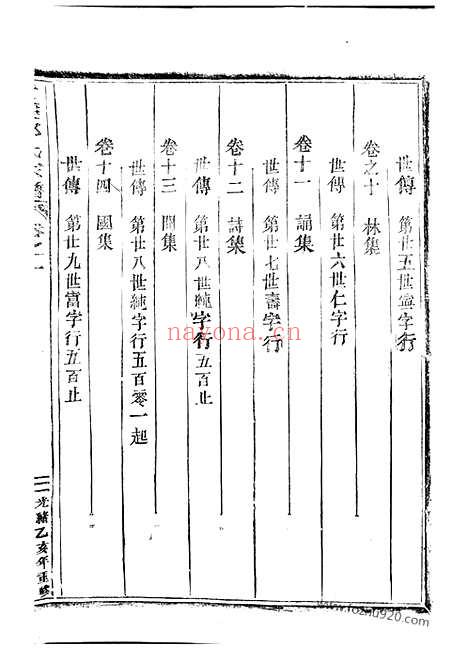 世傳 第廿五世寧字行
卷之十 林集
世傳 第廿六世仁字行
卷十一 誦集
世傳 第廿七世壽字行
卷十二 詩集
世傳 第廿八世純字行五百止
卷十三 聞集
世傳 第廿八世純字行五百零一起
卷十四 國集
世傳 第廿九世富字行五百止
光緒乙亥年重修
nayona.cn
www.fozhu920.com